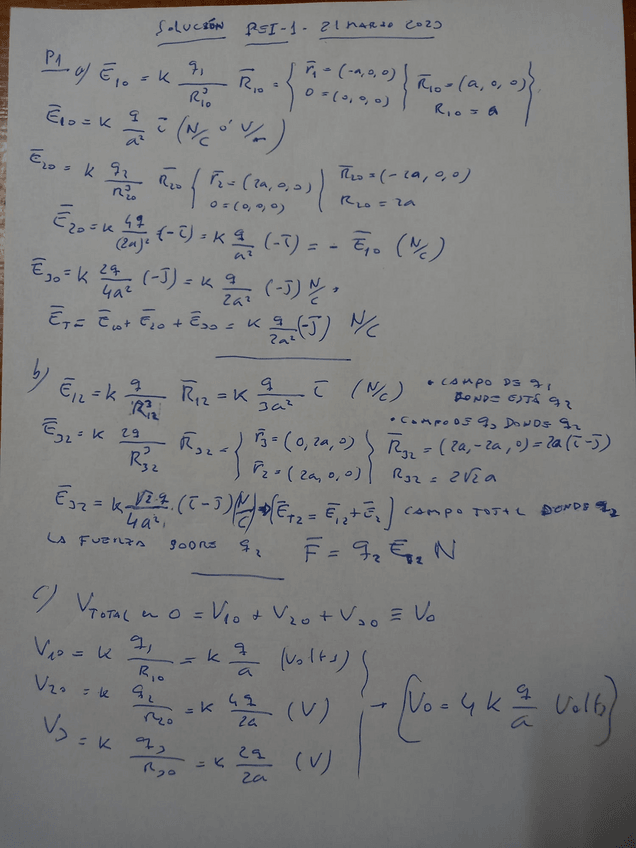 SOLUCIÓN PEI-1 - 21 MARZO 2023
P1 a) E̅₁₀ = K q₁/R₁₀³ R̅₁₀ = { r̅₁ = (-a, 0, 0) 0 = (0, 0, 0) { R̅₁₀ = (a, 0, 0) R₁₀ = a }
E̅₁₀ = K q/a² i̅ (N/C ó V/m)
E̅₂₀ = K q₂/R₂₀³ R̅₂₀ { r̅₂ = (2a, 0, 0) 0 = (0, 0, 0) } R̅₂₀ = (-2a, 0, 0) R₂₀ = 2a
E̅₂₀ = K 4q/(2a)² (-i̅) = K q/a² (-i̅) = - E̅₁₀ (N/C)
E̅₃₀ = K 2q/4a² (-j̅) = K q/2a² (-j̅) N/C
E̅T = E̅₁₀ + E̅₂₀ + E̅₃₀ = K q/2a² (-j̅) N/C
b) E̅₁₂ = K q/R₁₂³ R̅₁₂ = K q/3a² i̅ (N/C) • CAMPO DE q₁ DONDE ESTÁ q₂
• CAMPO DE q₃ DONDE q₂
E̅₃₂ = K 2q/R₃₂³ R̅₃₂ = { r̅₃ = (0, 2a, 0) r̅₂ = (2a, 0, 0) } R̅₃₂ = (2a, -2a, 0) = 2a (i̅ - j̅) R₃₂ = 2√2 a
E̅₃₂ = K √2 q/4a² · (i̅ - j̅) (N/C) ⇒ [E̅T₂ = E̅₁₂ + E̅₂] CAMPO TOTAL DONDE q₂
LA FUERZA SOBRE q₂ F̅ = q₂ E̅T₂ N
c) V TOTAL en 0 = V₁₀ + V₂₀ + V₃₀ ≡ V₀
V₁₀ = K q₁/R₁₀ = K q/a (Volts)
V₂₀ = K q₂/R₂₀ = K 4q/2a (V) → [V₀ = 4 K q/a Volts]
V₃ = K q₃/R₃₀ = K 2q/2a (V)